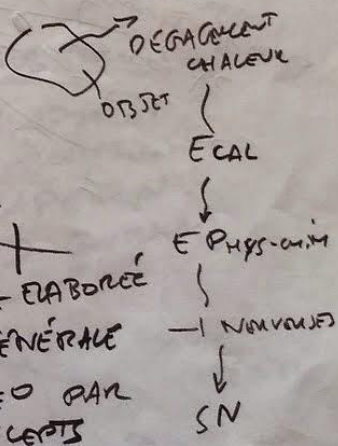 DÉGAGEMENT
CHALEUR
OBJET
E CAL
E PHYS-CHIM
ELABOREÉ
ENÉRALE
NERVEUSES
O PAR
CEPTS
SN